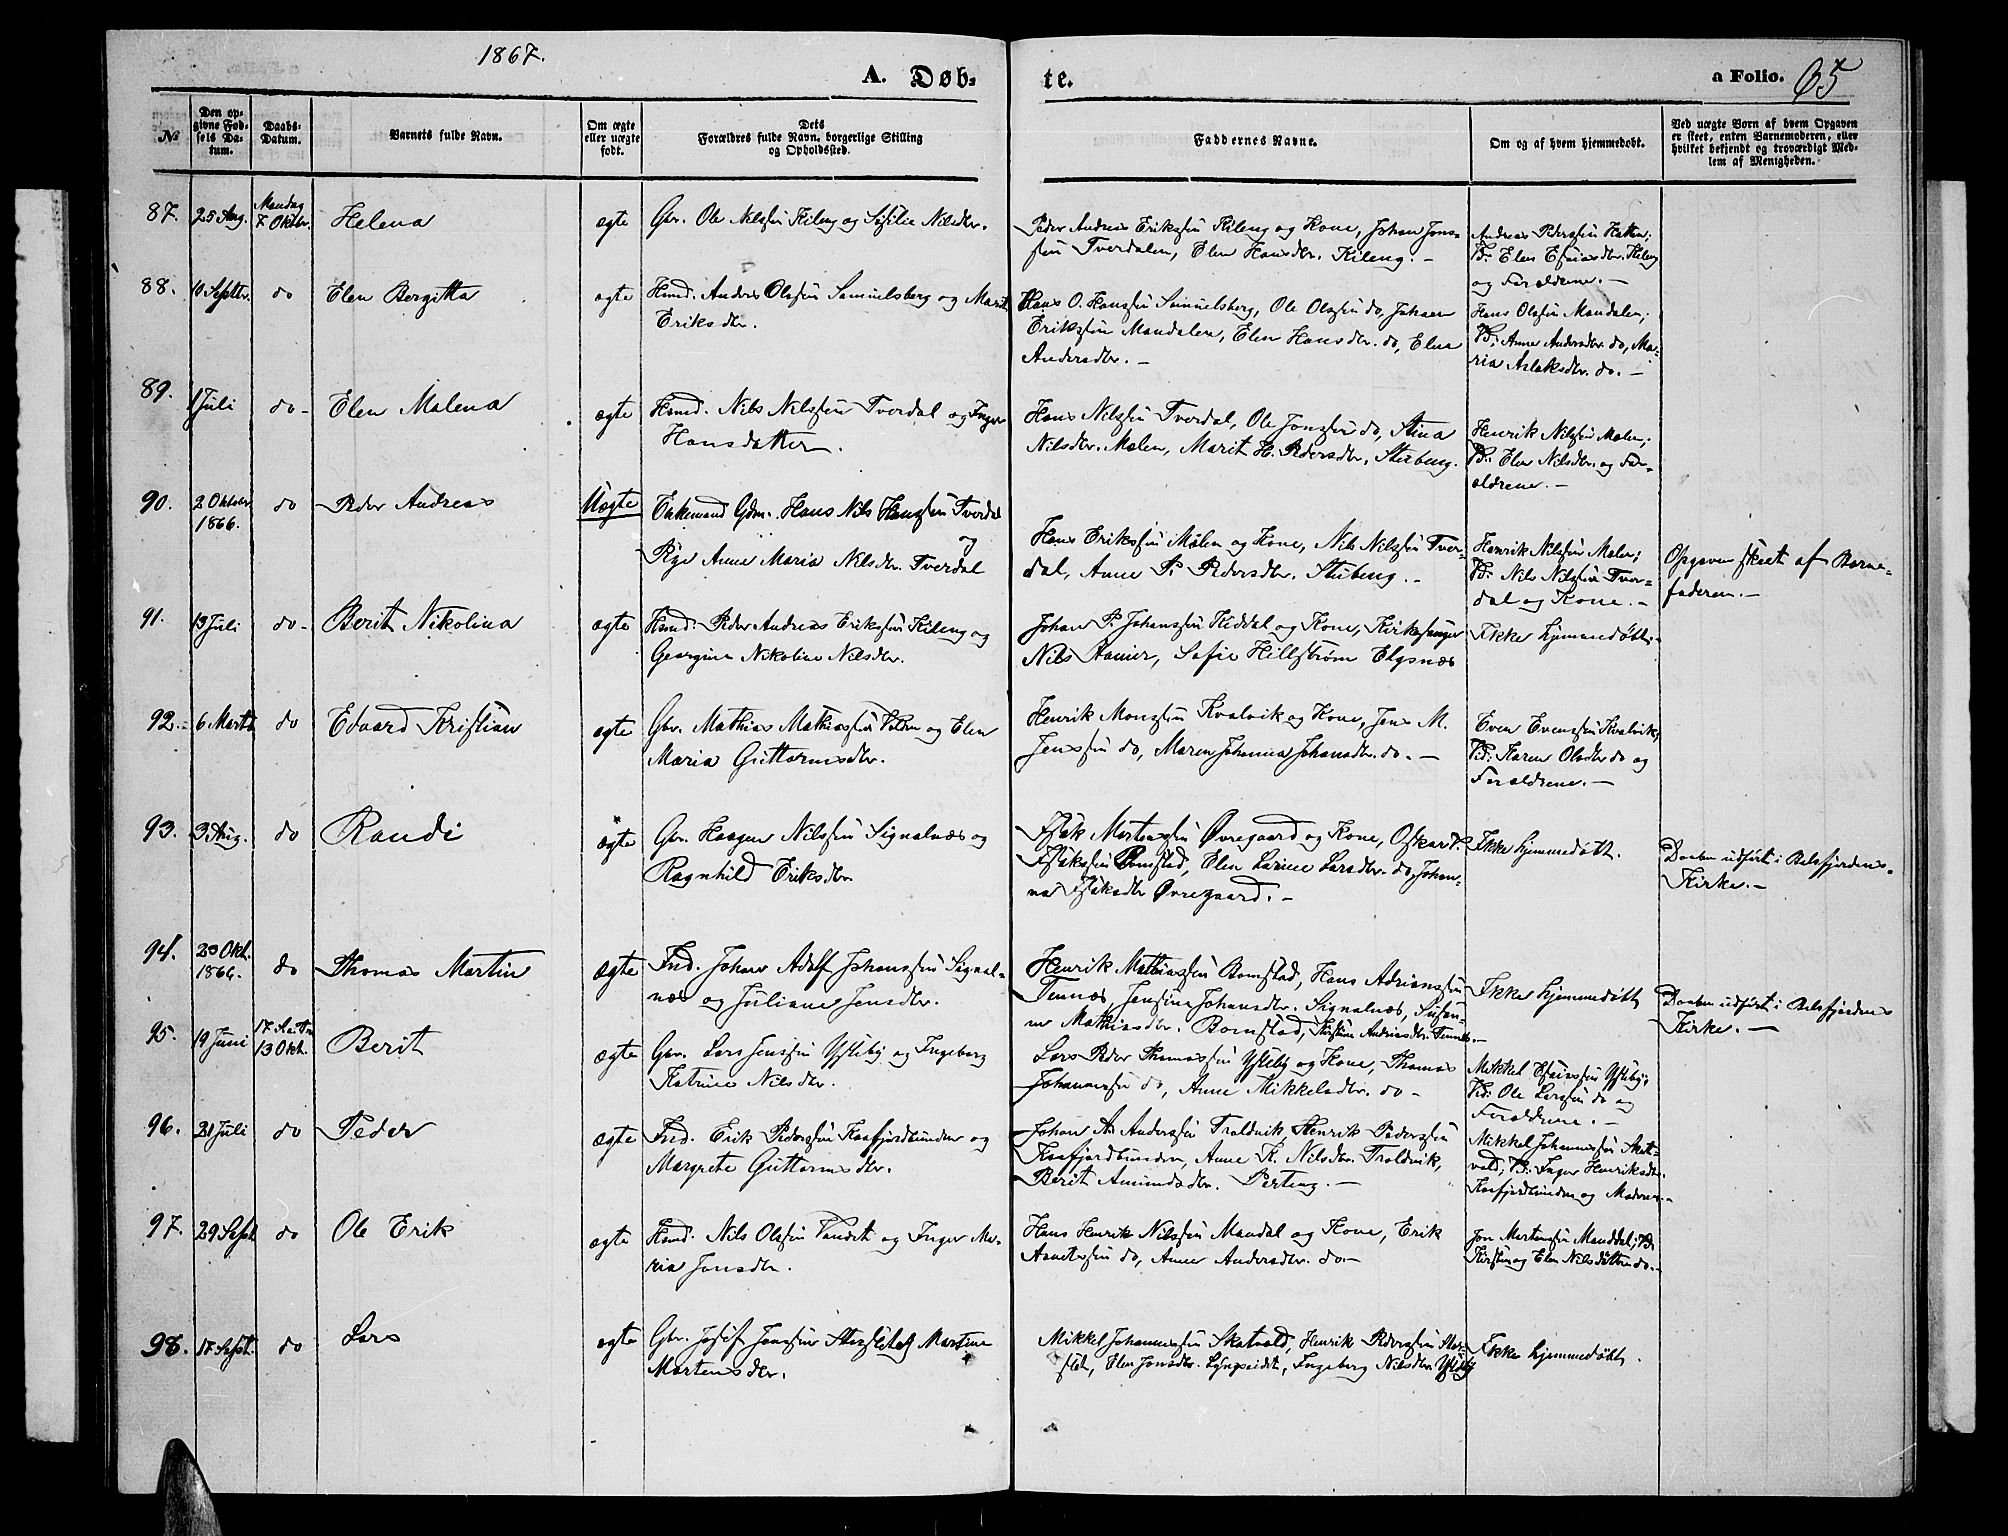 1867.
A. Døb-
te.
a Folio. 65
№
Den op-
givne Fød-
sels Da-
tum.
Daabs-
Datum.
Barnets fulde Navn.
Om ægte
eller uægte
født.
Dets
Forældres fulde Navn, borgerlige Stilling
og Opholdssted.
Faddernes Navne.
Om og af hvem hjemmedøbt.
Ved uægte Børn af hvem Opgaven
er skeet, enten Barnemoderen, eller
hvilket bekjendt og troværdigt Med-
lem af Menigheden.
87.
25 Aug.
Mandag
7 Oktbr.
Helena
ægte
Gbr. Ole Nilssen Kileng og Nilsdtr.
Peder Andreas Erikssen Kileng og Kone, Johan Jons-
sen Tverdalen, Elen Hansdtr. Kileng. -
Andreas Pederssen
B: Elen Esaiasdtr. Kileng
og Forældrene. -
88.
10 Septbr.
do
Elen Bergitta
ægte
Hmd. Anders Olssen Samuelsberg og Marit
Eriksdtr.
Hans O. Hanssen Samuelsberg, Ole Olssen do, Johan
Erikssen Mandalen, Elen Hansdtr. do, Elen
Andersdtr. -
Hans Olssen Mandalen;
B: Anne Andersdtr. do, Ma-
ria Aslaksdtr. do. -
89.
1 Juli
do -
Elen Malena
ægte
Hmd. Nils Nilssen Tverdal og Inger
Hansdatter.
Hans Nilssen Tverdal, Ole Jonssen do, Stina
Nilsdtr. Mælen, Marit H. Pedersdtr. Stubeng.
Henrik Nilssen Mælen;
B: Elen Nilsdtr. og For-
ældrene. -
90.
2 Oktober
1866.
do
Peder Andreas
Uægte
Enkemand Gdm. Hans Nils Hanssen Tverdal
og
Pige Anne Maria Nilsdtr. Tverdal
Hans Erikssen Mælen og Kone, Nils Nilssen Tver-
dal, Anne P. Pedersdtr. Stubeng. -
Henrik Nilssen Mælen;
B: Nils Nilssen Tver-
dal og Kone. -
Opgaven skeet af Barne-
faderen. -
91.
13 Juli
do -
Berit Nikolina
ægte
Hmd. Peder Andreas Erikssen Kileng og
Georgine Nikoline Nilsdtr.
Johan P. Johanssen Kiddal og Kone, Kirkesanger
Nils Sofie Hillstrøm Elgsnæs
Ikke hjemmedøbt. -
92.
6 Marts
do
Edvard Kristian
ægte
Gbr. Mathias Mathiassen og Elen
Maria Guttormsdtr.
Henrik Monssen Kvalvik og Kone, Jens M.
Jenssen do, Maren Johanna Johansdtr. do. -
Even Evenssen Kvalvik;
B: Karen Olsdtr. do og
Forældrene. -
93.
3 Aug.
do
Randi
ægte
Gbr. Haagen Nilssen Signalnæs og
Ragnhild Eriksdtr.
Isak Mortenssen Øvregaard og Kone, Oskar
Isakssen Bomstad, Elen Larine Larsdtr. do, Johan-
na Isaksdtr Øvregaard. -
Ikke hjemmedøbt.
Daaben udført i Balsfjordens
Kirke. -
94.
20 Okt.
1866.
do
Thomas Martin
ægte
Johan Adolf Johanssen Signal-
næs og Juliane Jensdtr.
Henrik Mathiassen Bomstad, Hans Adrianssen
Tennæs, Jensine Johansdtr. Signalnæs, Susan-
ne Mathisdtr. Bomstad, Kirstine Andreasdtr. Tennæs. -
Ikke hjemmedøbt
Daaben udført i Balsfjordens
Kirke. -
95.
19 Juni
13 Okt.
Berit
ægte
Gbr. Lars Jenssen Ysteby og Ingeborg
Katrine Nilsdtr.
Lars Peder Thomassen Ysteby og Kone, Thomas
Johannessen do, Anne Mikkelsdtr. do -
Mikkel Esaiassen Ysteby;
B: Ole Larssen do og
Forældrene. -
96.
21 Juli
do
Peder
ægte
Erik Pederssen Kaafjordbunden og
Margrete Guttormsdtr.
Johan A. Anderssen Troldvik, Henrik Pederssen
Kaafjordbunden, Anne K. Nilsdtr. Troldvik,
Berit Amundsdtr. Perteng. -
Mikkel Johannessen Skat-
vold; B: Inger Henriksdtr.
Kaafjordbunden og Moderen. -
97.
29 Sept
do
Ole Erik
ægte
Hmd. Nils Olssen og Inger Ma-
ria Jonsdtr.
Hans Henrik Nilssen Mandal og Kone, Erik
do, Anne Andersdtr. do. -
Jon Mortenssen Manddal; B:
Kirsten og Elen Nilsdøttre do. -
98.
17 Sept.
do
Lars
ægte
Gbr. Josef Jonssen Storslet og Martine
Mortensdtr.
Mikkel Johannessen Skatvold, Henrik Pederssen Stor-
slet, Elen Jonsdtr. Lyngseidet, Ingeborg Nilsdtr. Ysteby
Ikke hjemmedøbt.